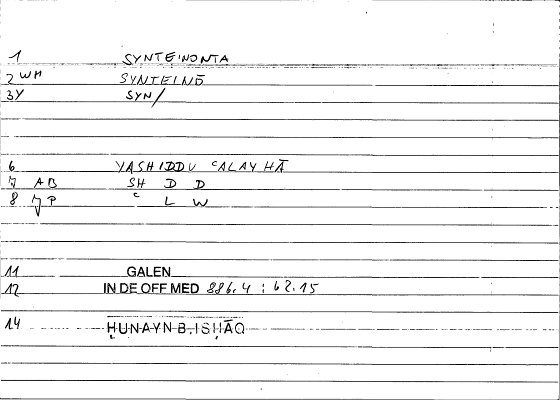 1 SYNTEINONTA
2 WH SYNTEINŌ
3 Y SYN/
6 YASHIDDU ʿALAYHĀ
7 AB SH D D
8 P ʿ L W
11 GALEN
12 IN DE OFF MED 886.4 : 62.15
14 ḤUNAYN B. ISḤĀQ